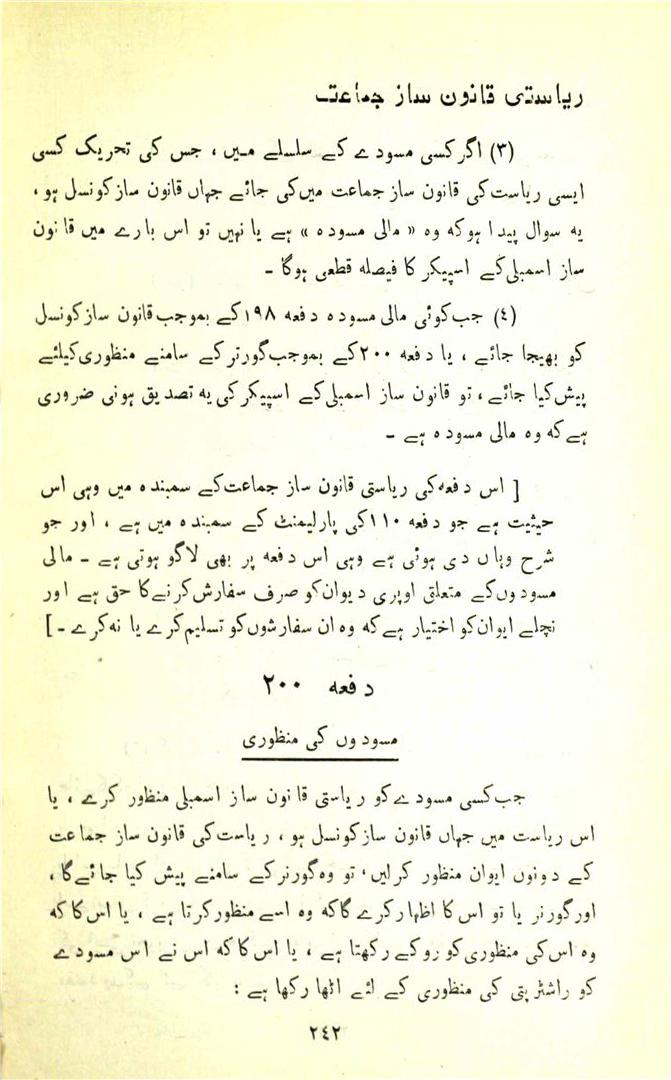 ریاستی قانون ساز جماعت
(۳) اگر کسی مسودے کے سلسلے میں ، جس کی تحریک کسی
ایسی ریاست کی قانون ساز جماعت میں کی جائے جہاں قانون ساز کونسل ہو ،
یہ سوال پیدا ہو کہ وہ «مالی مسودہ» ہے یا نہیں تو اس بارے میں قانون
ساز اسمبلی کے اسپیکر کا فیصلہ قطعی ہوگا ۔
(٤) جب کوئی مالی مسودہ دفعہ ۱۹۸ کے بموجب قانون ساز کونسل
کو بھیجا جائے ، یا دفعہ ۲۰۰ کے بموجب گورنر کے سامنے منظوری کیلئے
پیش کیا جائے ، تو قانون ساز اسمبلی کے اسپیکر کی یہ تصدیق ہونی ضروری
ہے کہ وہ مالی مسودہ ہے ۔
[ اس دفعہ کی ریاستی قانون ساز جماعت کے سمبندہ میں وہی اس
حیثیت ہے جو دفعہ ۱۱۰ کی پارلیمنٹ کے سمبندہ میں ہے ، اور جو
شرح وہاں دی ہوئی ہے وہی اس دفعہ پر بھی لاگو ہوتی ہے ۔ مالی
مسودوں کے متعلق اوپری دیوان کو صرف سفارش کرنے کا حق ہے اور
نچلے ایوان کو اختیار ہے کہ وہ ان سفارشوں کو تسلیم کرے یا نہ کرے ۔ ]
دفعہ ۲۰۰
مسودوں کی منظوری
جب کسی مسودے کو ریاستی قانون ساز اسمبلی منظور کرے ، یا
اس ریاست میں جہاں قانون ساز کونسل ہو ، ریاست کی قانون ساز جماعت
کے دونوں ایوان منظور کرلیں ، تو وہ گورنر کے سامنے پیش کیا جائے گا ،
اور گورنر یا تو اس کا اظہار کرے گا کہ وہ اسے منظور کرتا ہے ، یا اس کا کہ
وہ اس کی منظوری کو روکے رکھتا ہے ، یا اس کا کہ اس نے اس مسودے
کو راشٹرپتی کی منظوری کے لئے اٹھا رکھا ہے :
۲٤۲